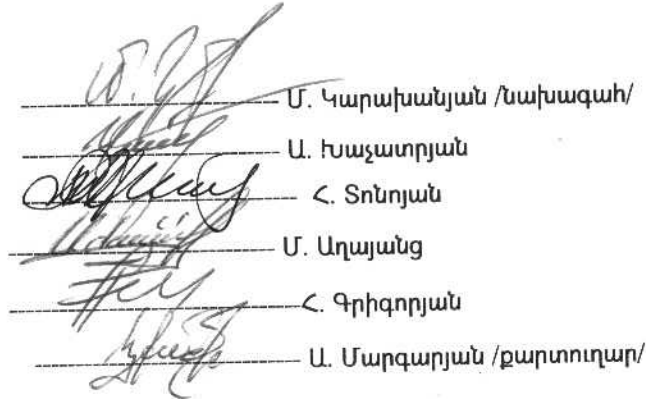 Մ. Կարախանյան /նախագահ/
Ա. Խաչատրյան
Հ. Տոնոյան
Մ. Աղայանց
Հ. Գրիգորյան
Ա. Մարգարյան /քարտուղար/